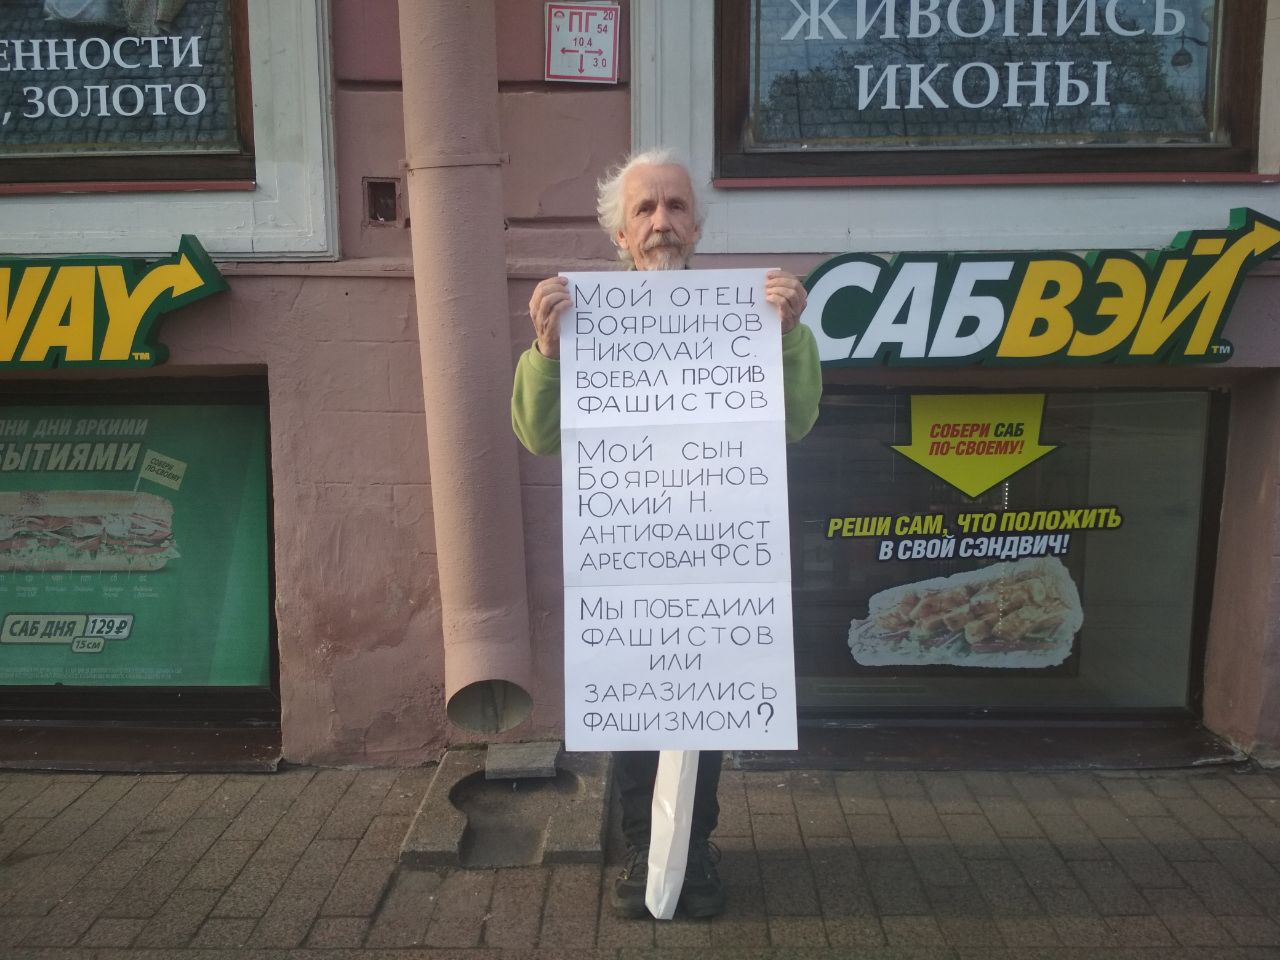 ЕННОСТИ
, ЗОЛОТО
ПГ 20
V 54
10,4
3,0
ЖИВОПИСЬ
ИКОНЫ
WAY
TM
САБВЭЙ
TM
Мой отец
Бояршинов
Николай С.
воевал против
фашистов
Мой сын
Бояршинов
Юлий Н.
антифашист
арестован ФСБ
Мы победили
фашистов
или
заразились
фашизмом?
ЛНИ ДНИ ЯРКИМИ
БЫТИЯМИ
СОБЕРИ
ПО-СВОЕМУ
САБ ДНЯ 129₽
15см
СОБЕРИ САБ
ПО-СВОЕМУ!
РЕШИ САМ, ЧТО ПОЛОЖИТЬ
В СВОЙ СЭНДВИЧ!